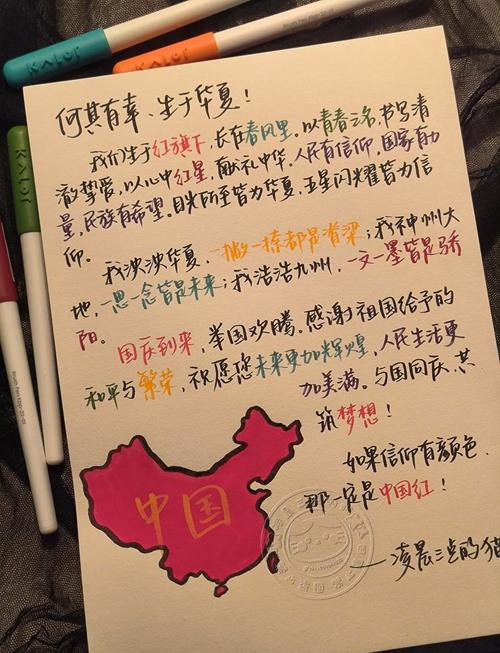 何其有幸、生于华夏！
我们生于红旗下，长在春风里。以青春之名，书写清
澈挚爱，以心中红星，献礼中华。人民有信仰，国家有力
量，民族有希望。目光所至皆为华夏，五星闪耀皆为信
仰。
我泱泱华夏，一撇一捺都是脊梁；我神州大
地，一思一念皆是未来；我浩浩九州，一文一墨皆是骄
阳。
国庆到来，举国欢腾。感谢祖国给予的
和平与繁荣，祝愿您未来更加辉煌，人民生活更
加美满。与国同庆、共
筑梦想！
如果信仰有颜色，
那一定是中国红！
——凌晨三点的猫
中国
KALOr
KALOr
KALOr